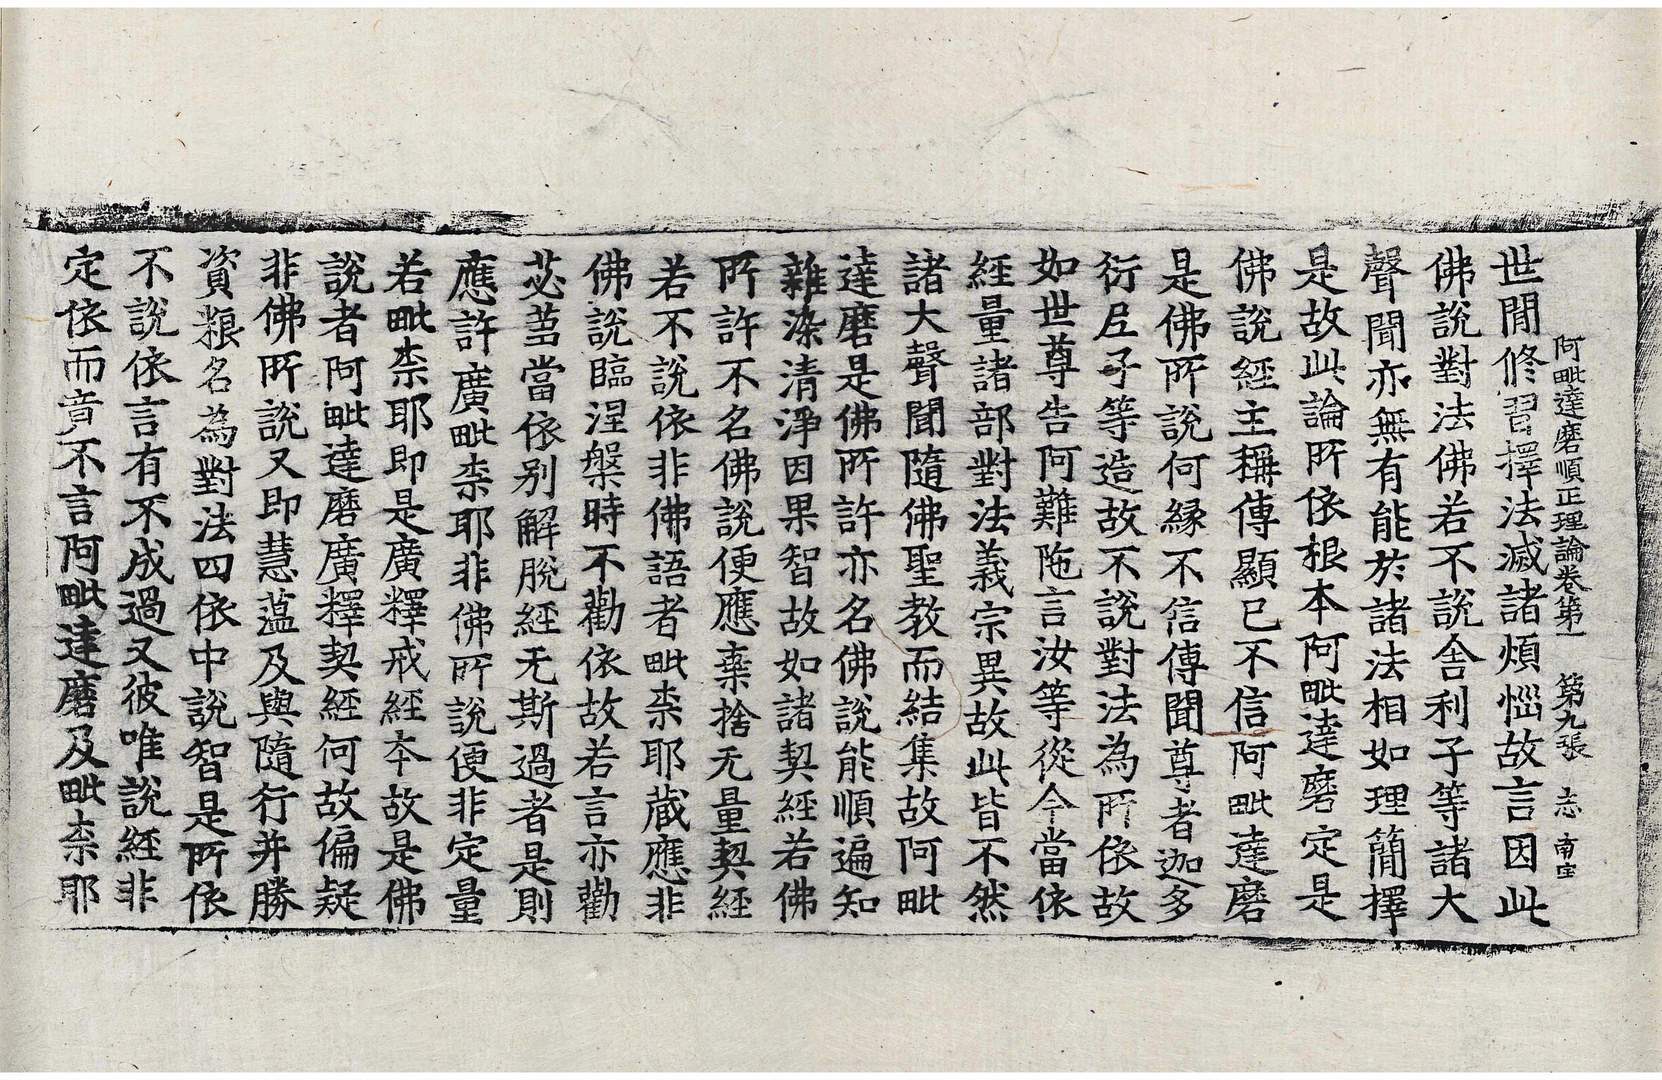 阿毗達磨順正理論卷第一　第九張　志　南宝
世間修習擇法滅諸煩惱故言因此
佛說對法佛若不說舍利子等諸大
聲聞亦無有能於諸法相如理簡擇
是故此論所依根本阿毗達磨定是
佛說經主稱傳顯已不信阿毗達磨
是佛所說何緣不信傳聞尊者迦多
衍尼子等造故不說對法為所依故
如世尊告阿難陁言汝等從今當依
經量諸部對法義宗異故此皆不然
諸大聲聞隨佛聖教而結集故阿毗
達磨是佛所許亦名佛說能順遍知
雜染清淨因果智故如諸契經若佛
所許不名佛說便應棄捨无量契經
若不說依非佛語者毗柰耶藏應非
佛說臨涅槃時不勸依故若言亦勸
苾蒭當依別解脫經无斯過者是則
應許廣毗柰耶非佛所說便非定量
若毗柰耶即是廣釋戒經本故是佛
說者阿毗達磨廣釋契經何故偏疑
非佛所說又即慧蘊及與隨行并勝
資粮名為對法四依中說智是所依
不說依言有不成過又彼唯說經非
定依而竟不言阿毗達磨及毗柰耶